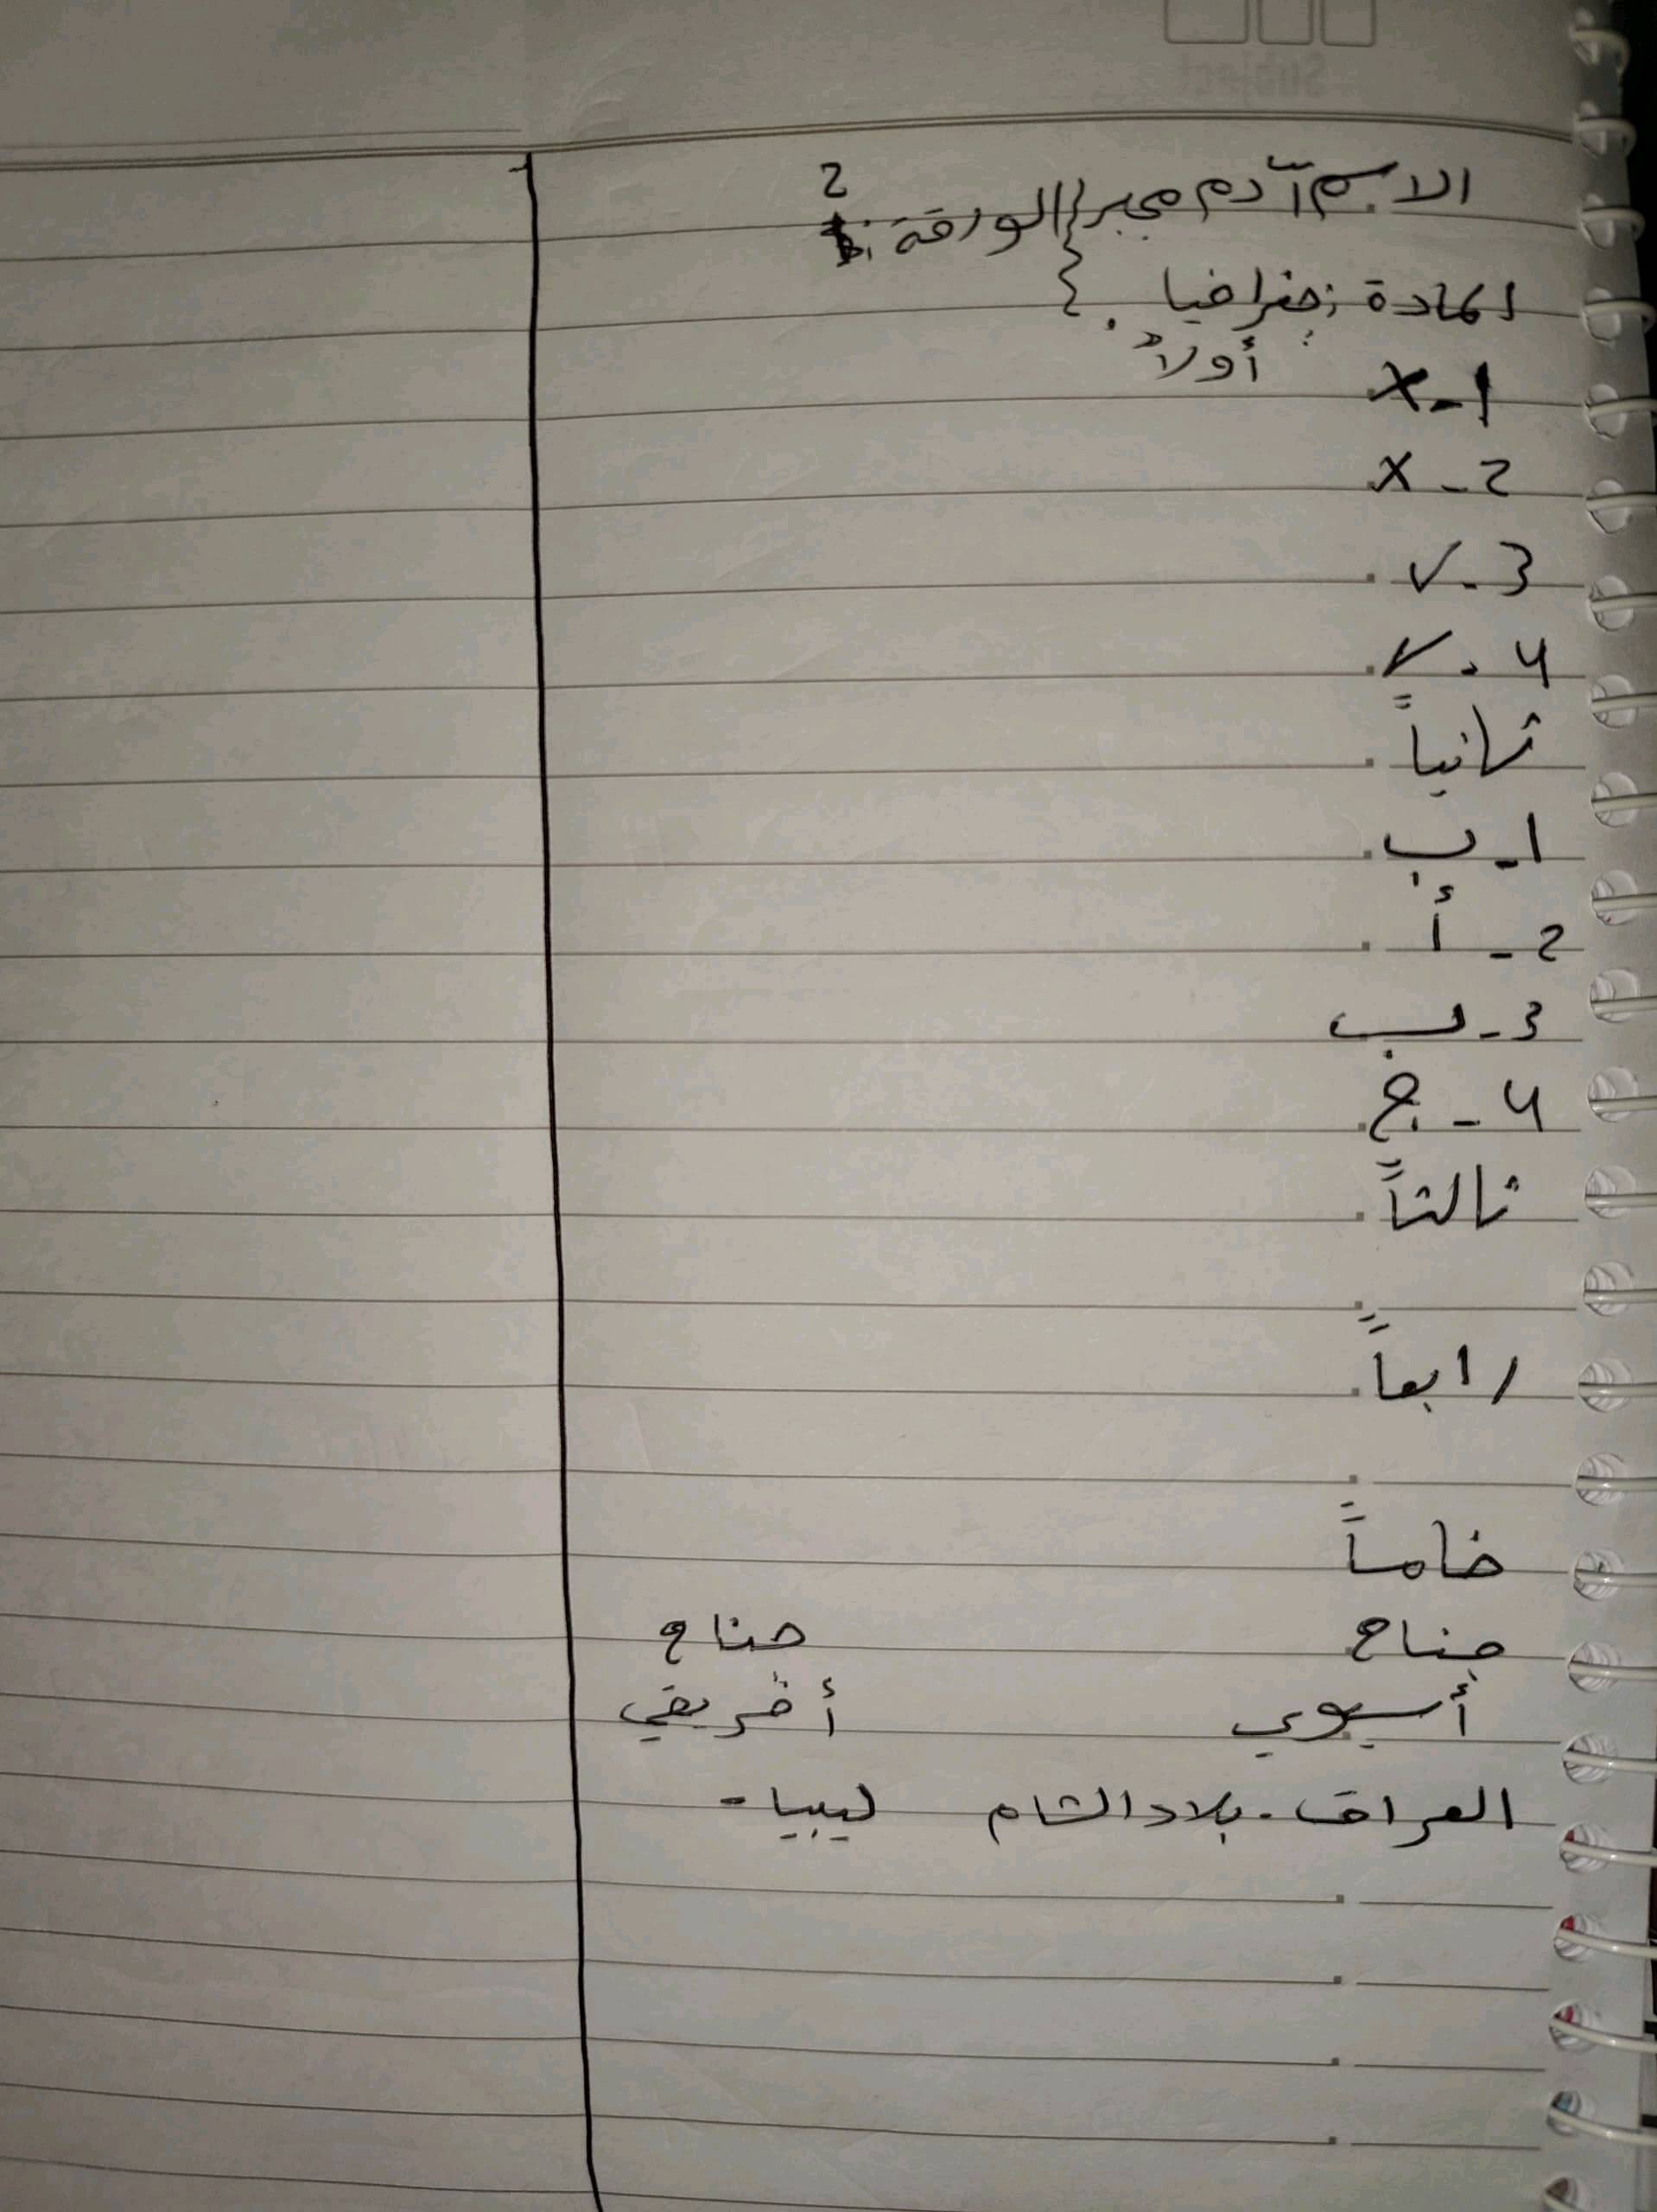 الاسم آدم مجبر الورقة: 2
المادة: جغرافيا.
أولاً
1- X
2- X
3- ✓
4- ✓
ثانياً
1- ب
2- أ
3- ب
4- ج
ثالثاً
رابعاً
خامساً
جناح جناح
أسيوي أفريقي
العراق - بلاد الشام ليبيا -